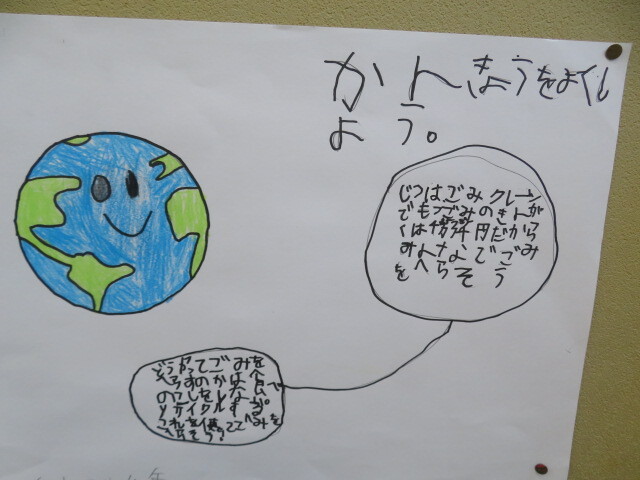 かんきょうをよくし
よう。
じつはごみクレーン
でもつごみのきんが
くは 円だから
みんなでご み
をへらそう
どうやってごみを
へらすのかは食べ
のこしをなく
リサイクルする。
これを使ってごみを
へらそう